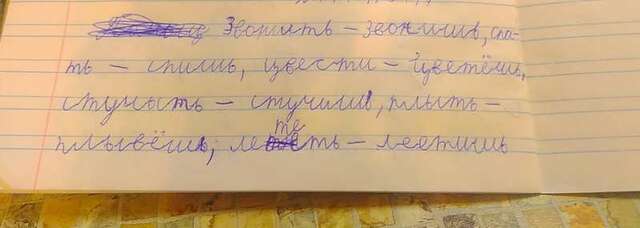 Звонить – звонишь, спа-
ть – спишь, цвести – цветёшь,
стучать – стучишь, плыть –
плывёшь, лететь – летишь